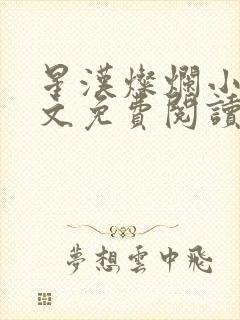 星漢燦爛小
文免費閱讀
夢想雲中飛